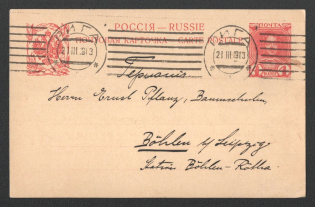 РОССІЯ — RUSSIE
ПОЧТОВАЯ КАРТОЧКА — CARTE POSTALE
РИГА 21 III 1913
РИГА 21 III 1913
ПОЧТА
4
Германія
Herrn Ernst Pflanz, Baumschulen
Böhlen b/ Leipzig
Station Böhlen-Rötha.